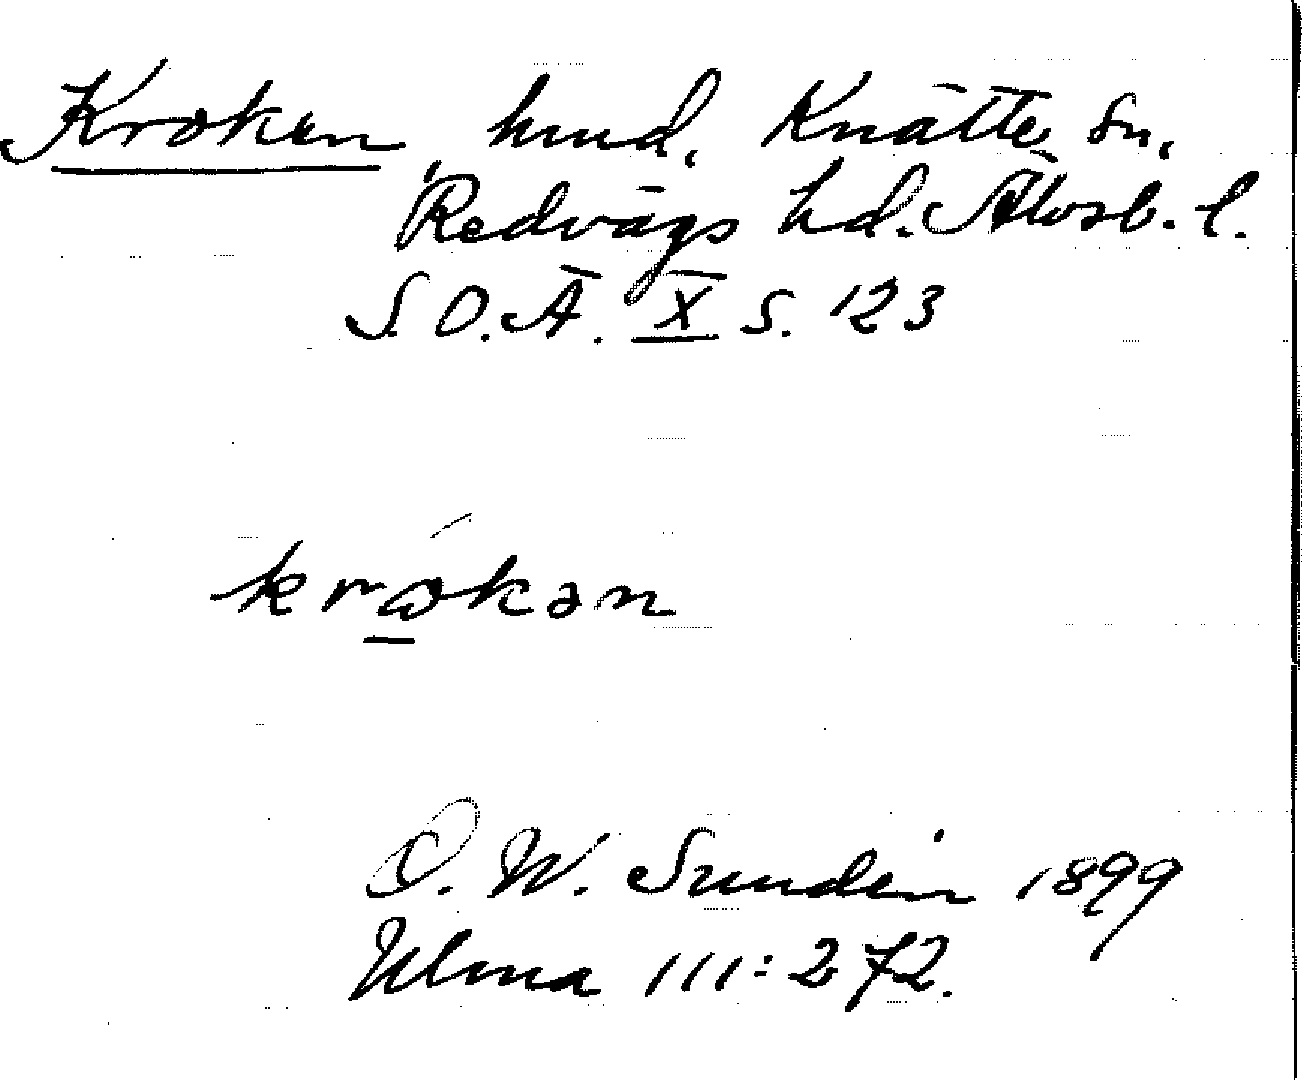 Kroken, hmd, Knätte sn,
Redvägs hd. Älvsb. l.
S.O.Ä. X s. 123
krɷkən
O. W. Sundén 1899
Ulma 111:272.